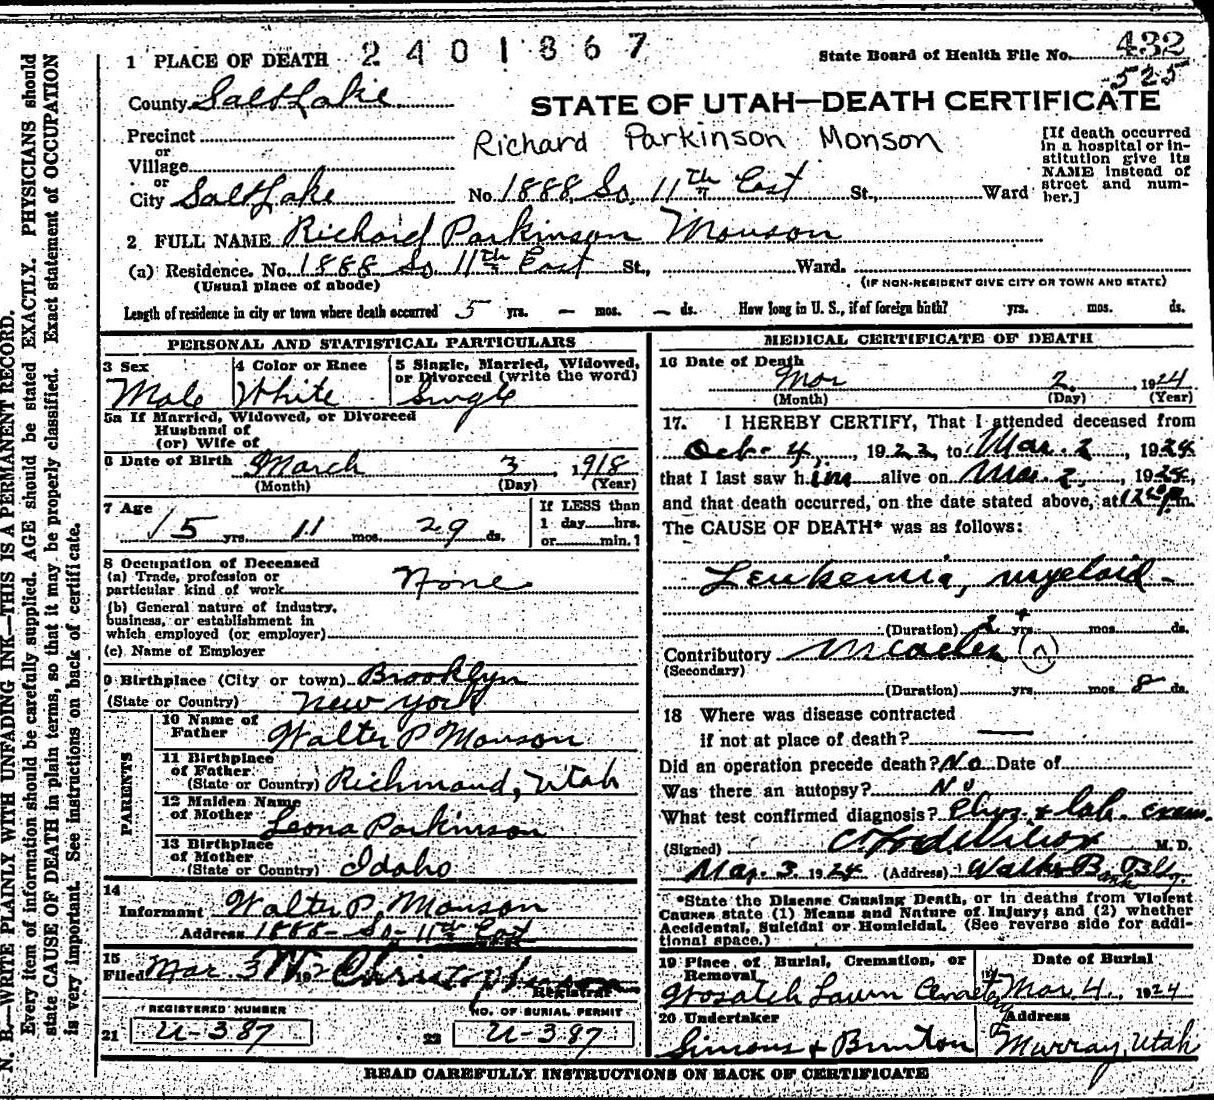 1 PLACE OF DEATH 2401867
State Board of Health File No. 432
525
County Salt Lake
STATE OF UTAH—DEATH CERTIFICATE
Precinct
Richard Parkinson Monson
or
Village
or
City Salt Lake No. 1888 So. 11th East St., Ward
[If death occurred
in a hospital or in-
stitution give its
NAME instead of
street and num-
ber.]
2 FULL NAME Richard Parkinson Monson
(a) Residence. No. 1888 So 11th East St., Ward.
(Usual place of abode) (IF NON-RESIDENT GIVE CITY OR TOWN AND STATE)
Length of residence in city or town where death occurred 5 yrs. — mos. — ds. How long in U. S., if of foreign birth? yrs. mos. ds.
PERSONAL AND STATISTICAL PARTICULARS
3 Sex 4 Color or Race 5 Single, Married, Widowed,
or Divorced (write the word)
Male White Single
5a If Married, Widowed, or Divorced
Husband of
(or) Wife of
6 Date of Birth March 3, 1918
(Month) (Day) (Year)
7 Age 15 yrs. 11 mos. 29 ds.
If LESS than
1 day hrs.
or min.?
8 Occupation of Deceased
(a) Trade, profession or
particular kind of work None
(b) General nature of industry,
business, or establishment in
which employed (or employer)
(c) Name of Employer
9 Birthplace (City or town) Brooklyn
(State or Country) New York
PARENTS
10 Name of
Father Walter P Monson
11 Birthplace
of Father
(State or Country) Richmond, Utah
12 Maiden Name
of Mother Leona Parkinson
13 Birthplace
of Mother
(State or Country) Idaho
14
Informant Walter P. Monson
Address 1888 - So - 11th East
15
Filed Mar. 3 192 Christopherson
Registrar
REGISTERED NUMBER NO. OF BURIAL PERMIT
21 U-387 22 U-387
MEDICAL CERTIFICATE OF DEATH
16 Date of Death
Mar 2, 1924
(Month) (Day) (Year)
17. I HEREBY CERTIFY, That I attended deceased from
Oct. 4, 1923, to Mar. 2, 1924
that I last saw him alive on Mar. 2, 1924,
and that death occurred, on the date stated above, at 12 m.
The CAUSE OF DEATH* was as follows:
Leukemia, myeloid -
(Duration) 2 + yrs. mos. ds.
Contributory
(Secondary)
(Duration) yrs. mos. 8 ds.
18 Where was disease contracted
if not at place of death? —
Did an operation precede death? No Date of
Was there an autopsy? No
What test confirmed diagnosis? Phys. + lab. exam.
(Signed) M. D.
Mar. 3. 1924 (Address) Walker Bank Bldg.
*State the Disease Causing Death, or in deaths from Violent
Causes state (1) Means and Nature of Injury; and (2) whether
Accidental, Suicidal or Homicidal. (See reverse side for addi-
tional space.)
19 Place of Burial, Cremation, or
Removal
Date of Burial
Wasatch Lawn Cemetery Mar 4, 1924
20 Undertaker Address
Simons & Brunton Murray, Utah
READ CAREFULLY INSTRUCTIONS ON BACK OF CERTIFICATE
N. B.—WRITE PLAINLY WITH UNFADING INK—THIS IS A PERMANENT RECORD.
Every item of information should be carefully supplied. AGE should be stated EXACTLY. PHYSICIANS should
state CAUSE OF DEATH in plain terms, so that it may be properly classified. Exact statement of OCCUPATION
is very important. See instructions on back of certificate.